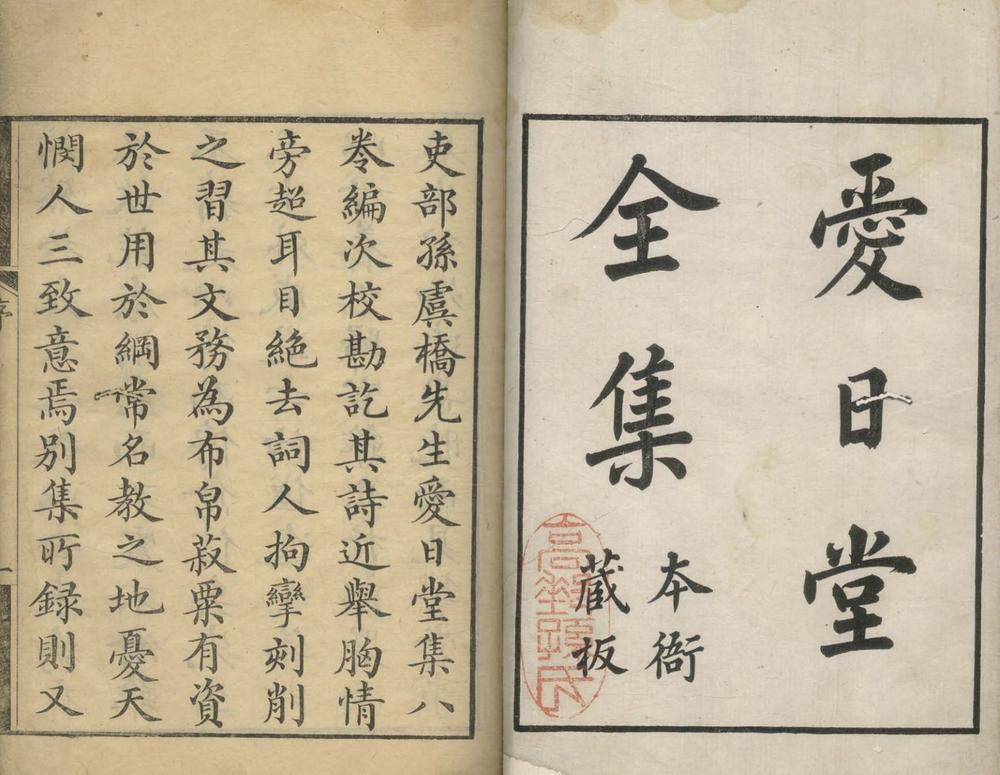 愛日堂
全集
本衙
蔵板
吏部孫虞橋先生愛日堂集八
卷編次校勘訖其詩近舉胸情
旁超耳目絶去詞人拘攣刻削
之習其文務為布帛菽粟有資
於世用於綱常名教之地憂天
憫人三致意焉別集所録則又
序
一